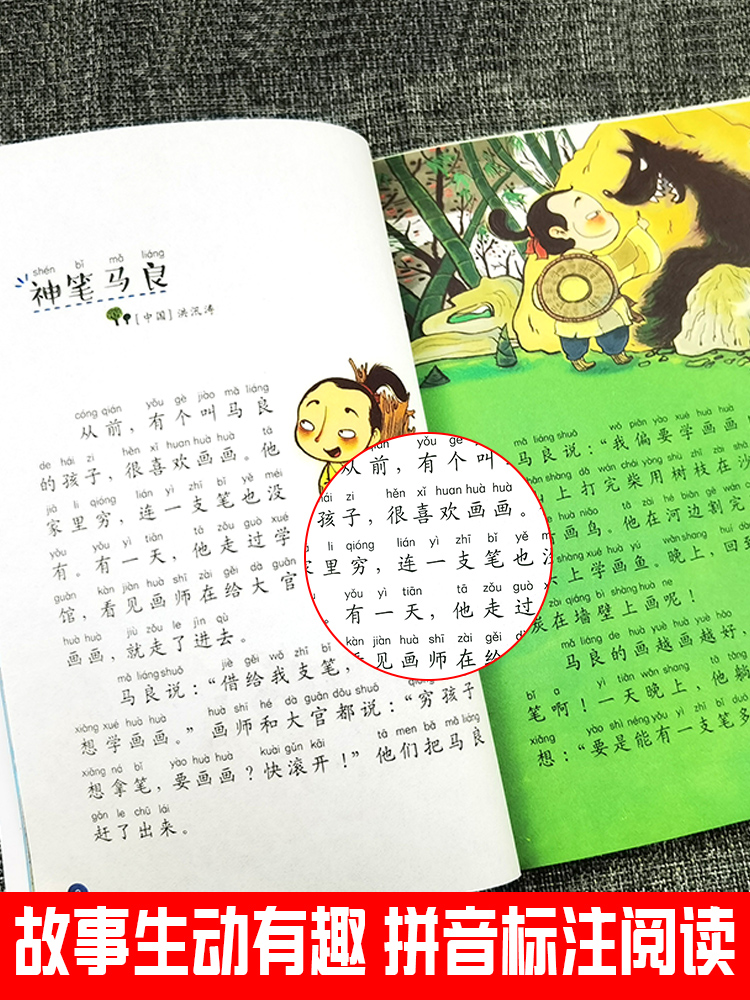 shén bǐ mǎ liáng
神笔马良
[中国]洪汛涛
cóng qián yǒu gè jiào mǎ liáng
从前，有个叫马良
de hái zi hěn xǐ huan huà huà tā
的孩子，很喜欢画画。他
jiā lǐ qióng lián yì zhī bǐ yě méi
家里穷，连一支笔也没
yǒu yǒu yì tiān tā zǒu guò xué
有。有一天，他走过学
guǎn kàn jiàn huà shī zài gěi dà guān
馆，看见画师在给大官
huà huà jiù zǒu le jìn qù
画画，就走了进去。
mǎ liáng shuō jiè gěi wǒ zhī bǐ
马良说：“借给我支笔，
xiǎng xué huà huà huà shī hé dà guān dōu shuō qióng
想学画画。”画师和大官都说：“穷孩子
xiǎng ná bǐ yào huà huà kuài gǔn kāi tā men bǎ mǎ liáng
想拿笔，要画画？快滚开！”他们把马良
gǎn le chū lái
赶了出来。
qián yǒu gè
从前，有个叫
hái zi hěn xǐ huan huà huà
孩子，很喜欢画画。
lǐ qióng lián yì zhī bǐ yě
家里穷，连一支笔也没
yǒu yì tiān tā zǒu guò
有一天，他走过
kàn jiàn huà shī zài gěi
看见画师在给
mǎ liáng shuō wǒ piān yào xué huà huà
马良说：“我偏要学画画
shàng dǎ wán chái yòng shù zhī zài shā
山上打完柴用树枝在沙
huà niǎo tā zài hé biān gē wán
画鸟。他在河边割完
shàng xué huà yú wǎn shang huí dào
上学画鱼。晚上，回到
zài qiáng bì shàng huà ne
炭在墙壁上画呢！
mǎ liáng de huà yuè huà yuè hǎo
马良的画越画越好，
bǐ a yì tiān wǎn shang tā tǎng
笔啊！一天晚上，他躺
xiǎng yào shì néng yǒu yì zhī bǐ duō
想：“要是能有一支笔多
故事生动有趣 拼音标注阅读